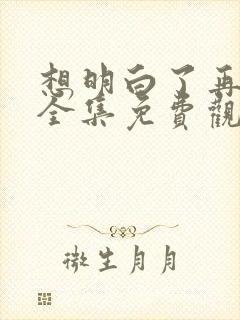 想明白了再
全集免費觀
微生月月